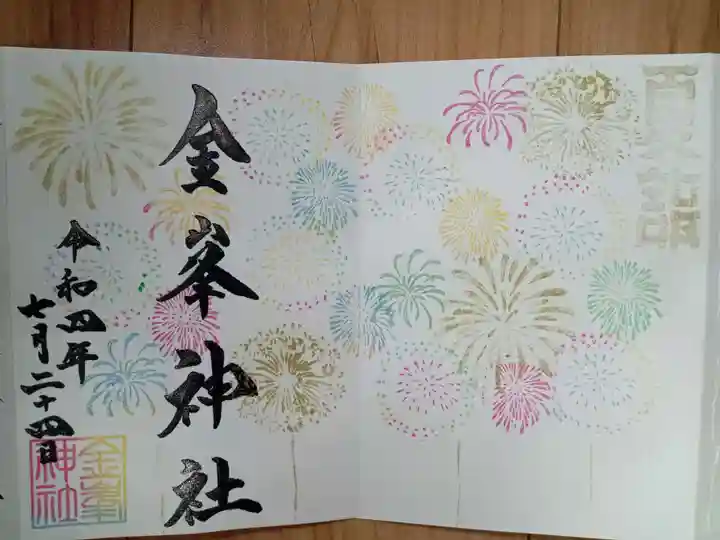 金峯神社
令和四年
七月二十四日
金峯
神社